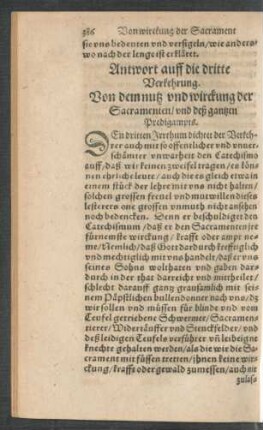 386 Von wirckung der Sacrament
sie vns bedeuten vnd versigeln/wie anders-
wo nach der lenge ist erkläret.
Antwort auff die dritte
Verkehrung.
Von dem nutz vnd wirckung der
Sacramenten/vnd deß gantzen
Predigampts.
DEn dritten Irrthum dichtet der Verkeh-
rer auch mit so offentlicher vnd vnuer-
schämter vnwarheit den Catechismo
auff/daß wir keinen zweifel tragen/es kön-
nen ehrliche leute/auch die es gleich etwa in
einem stück der lehre mit vns nicht halten/
solchen grossen freuel vnd mutwillen dieses
lesterers one grossen vnmuth nicht ansehen
noch bedencken. Denn er beschuldiget den
Catechismum/daß er den Sacramenten jre
fürnemste wirckung/krafft oder ampt ne-
me/Nemlich/daß Gott dardurch krefftigli-
ch vnd mechtiglich mit vns handelt/daß er vns
seines Sohns wolthaten vnd gaben dar-
durch in der that darreicht vnd mittheilet/
schlecht darauff gantz grausamlich mit sei-
nem Päpstlichen bullendonner nach vns/dz
wir sollen vnd müssen für blinde vnd vom
Teufel getriebene Schwermer/Sacramen-
tierer/Widertäuffer vnd Stenckfelder/vnd
deß leidigen Teufels verführer vñ leibeigne
knechte gehalten werden/als die wie die Sa-
crament mit füssen tretten/jhnen keine wir-
ckung/krafft oder gewald zumessen/auch nit
zulass